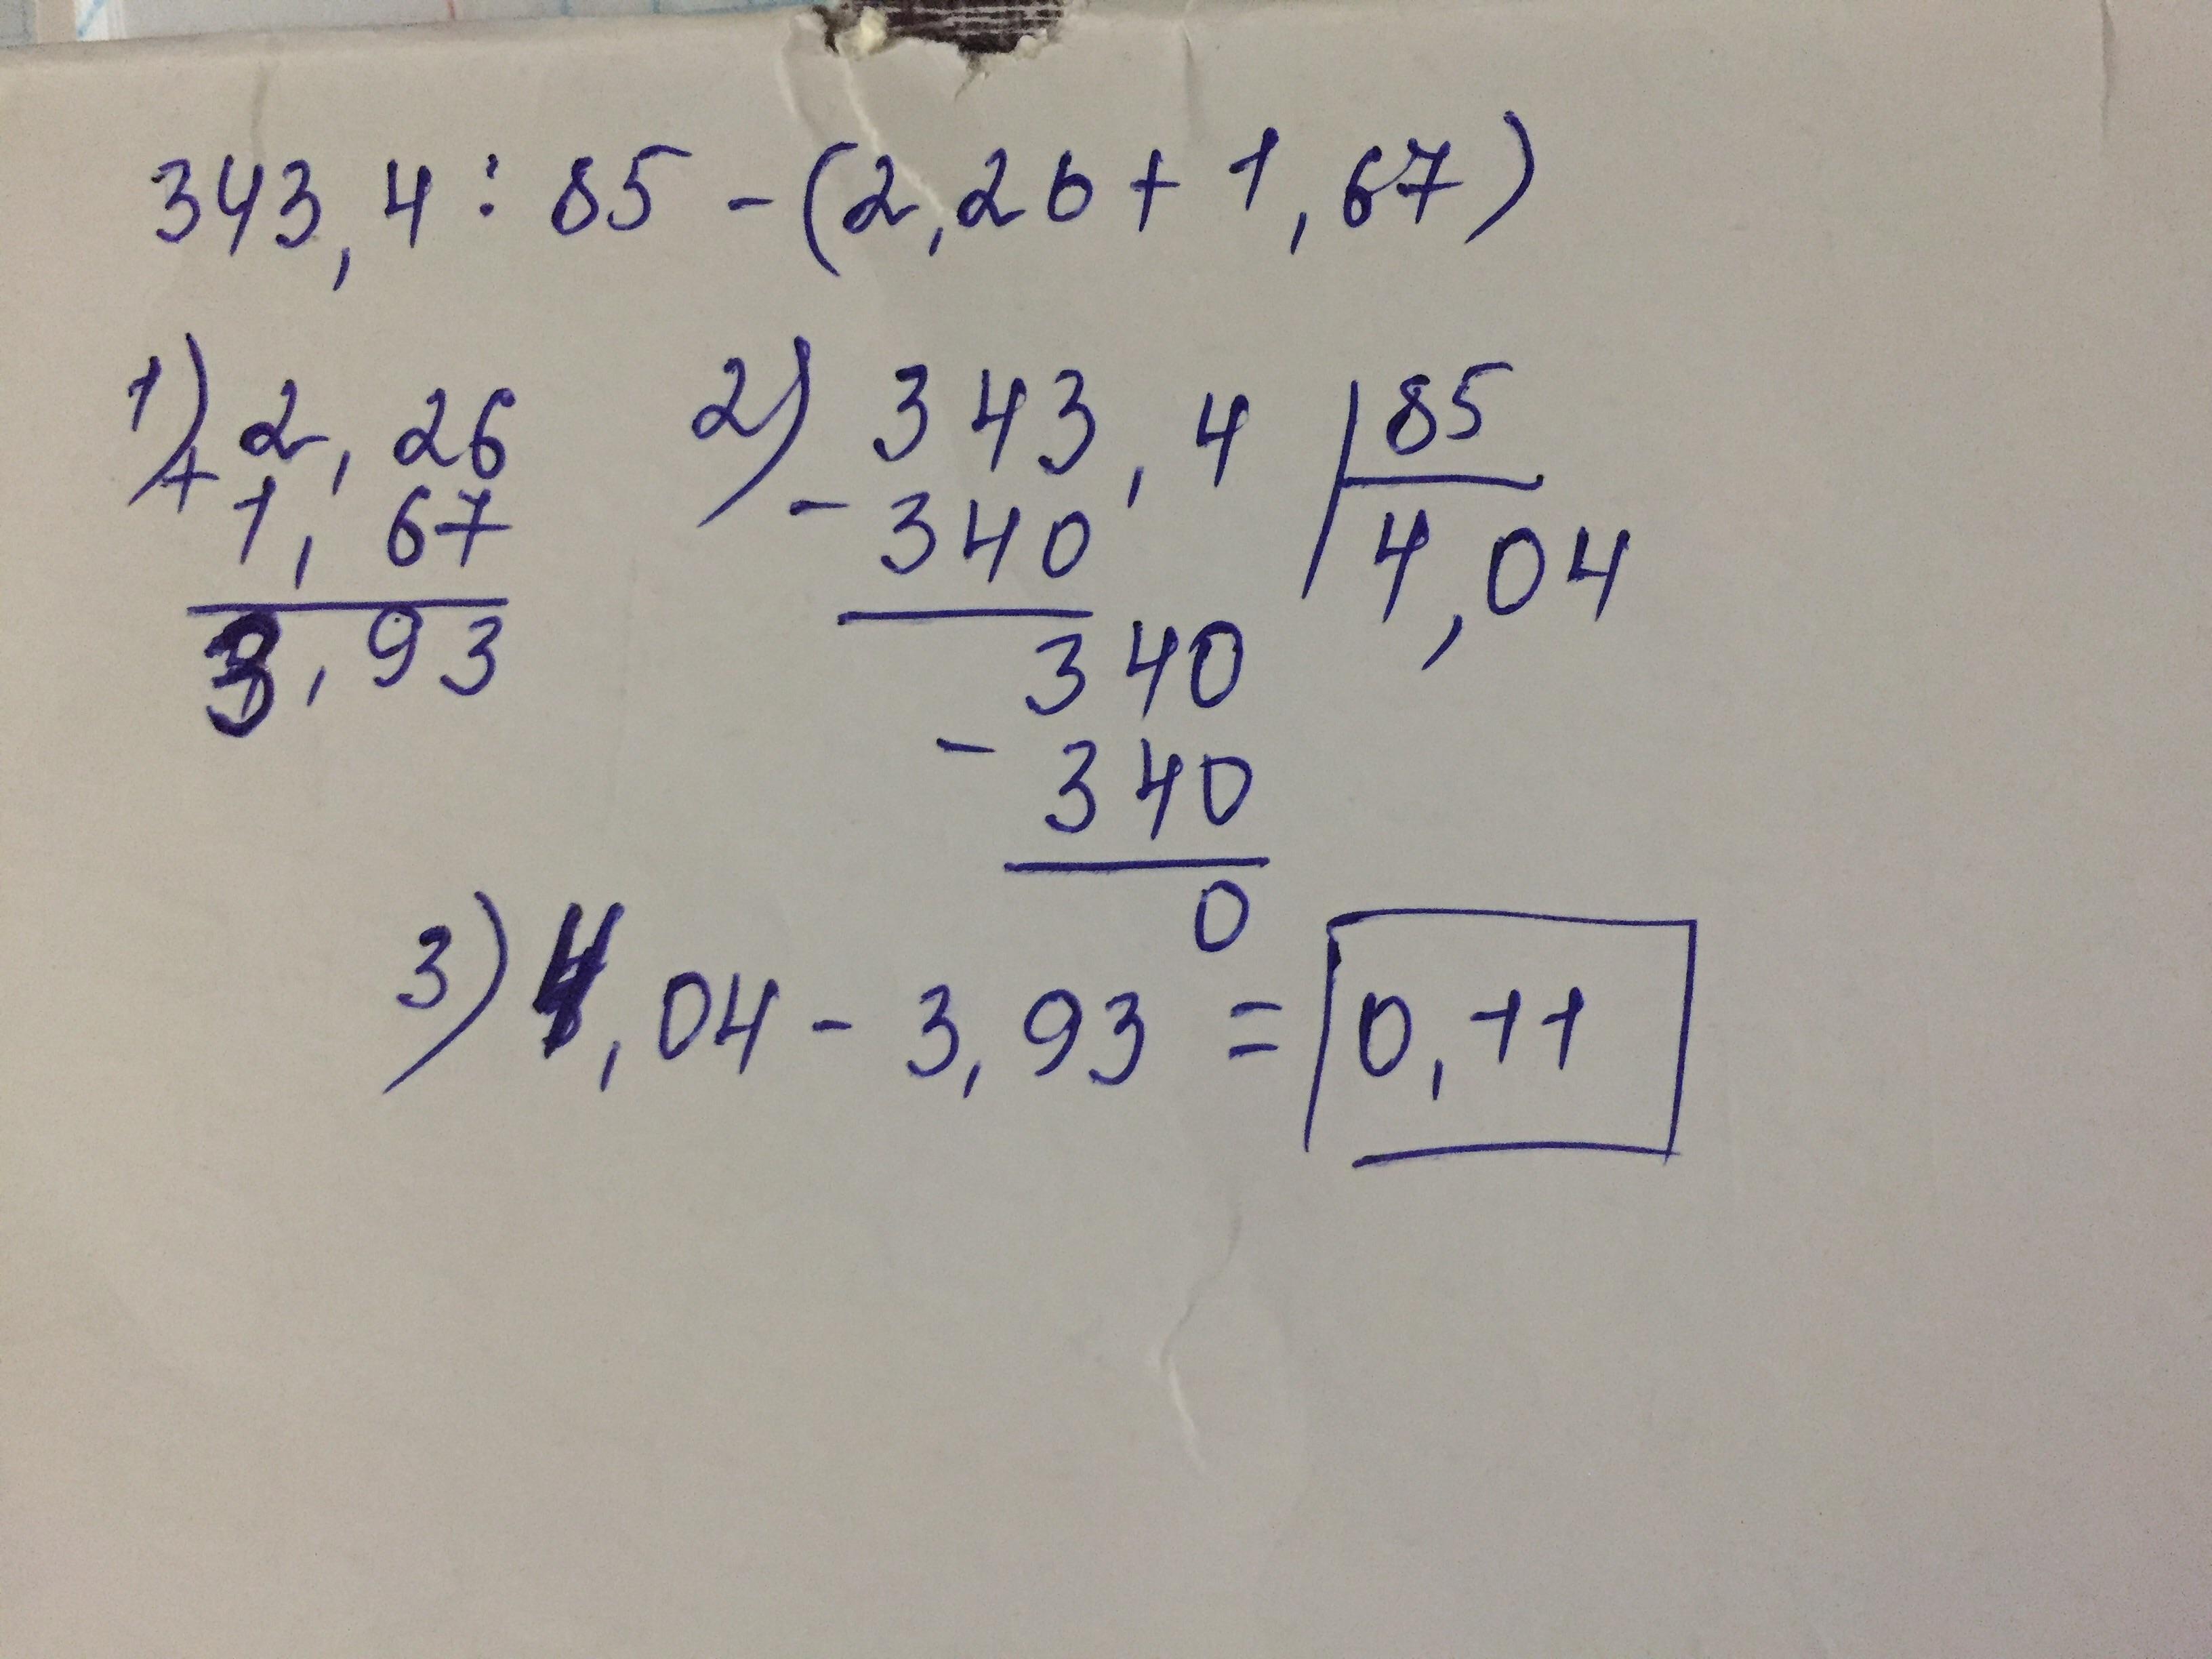 343,4 : 85 - (2,26 + 1,67)
1) 2,26
+ 1,67
3,93
2) 343,4 | 85
- 340 4,04
340
- 340
0
3) 4,04 - 3,93 = 0,11